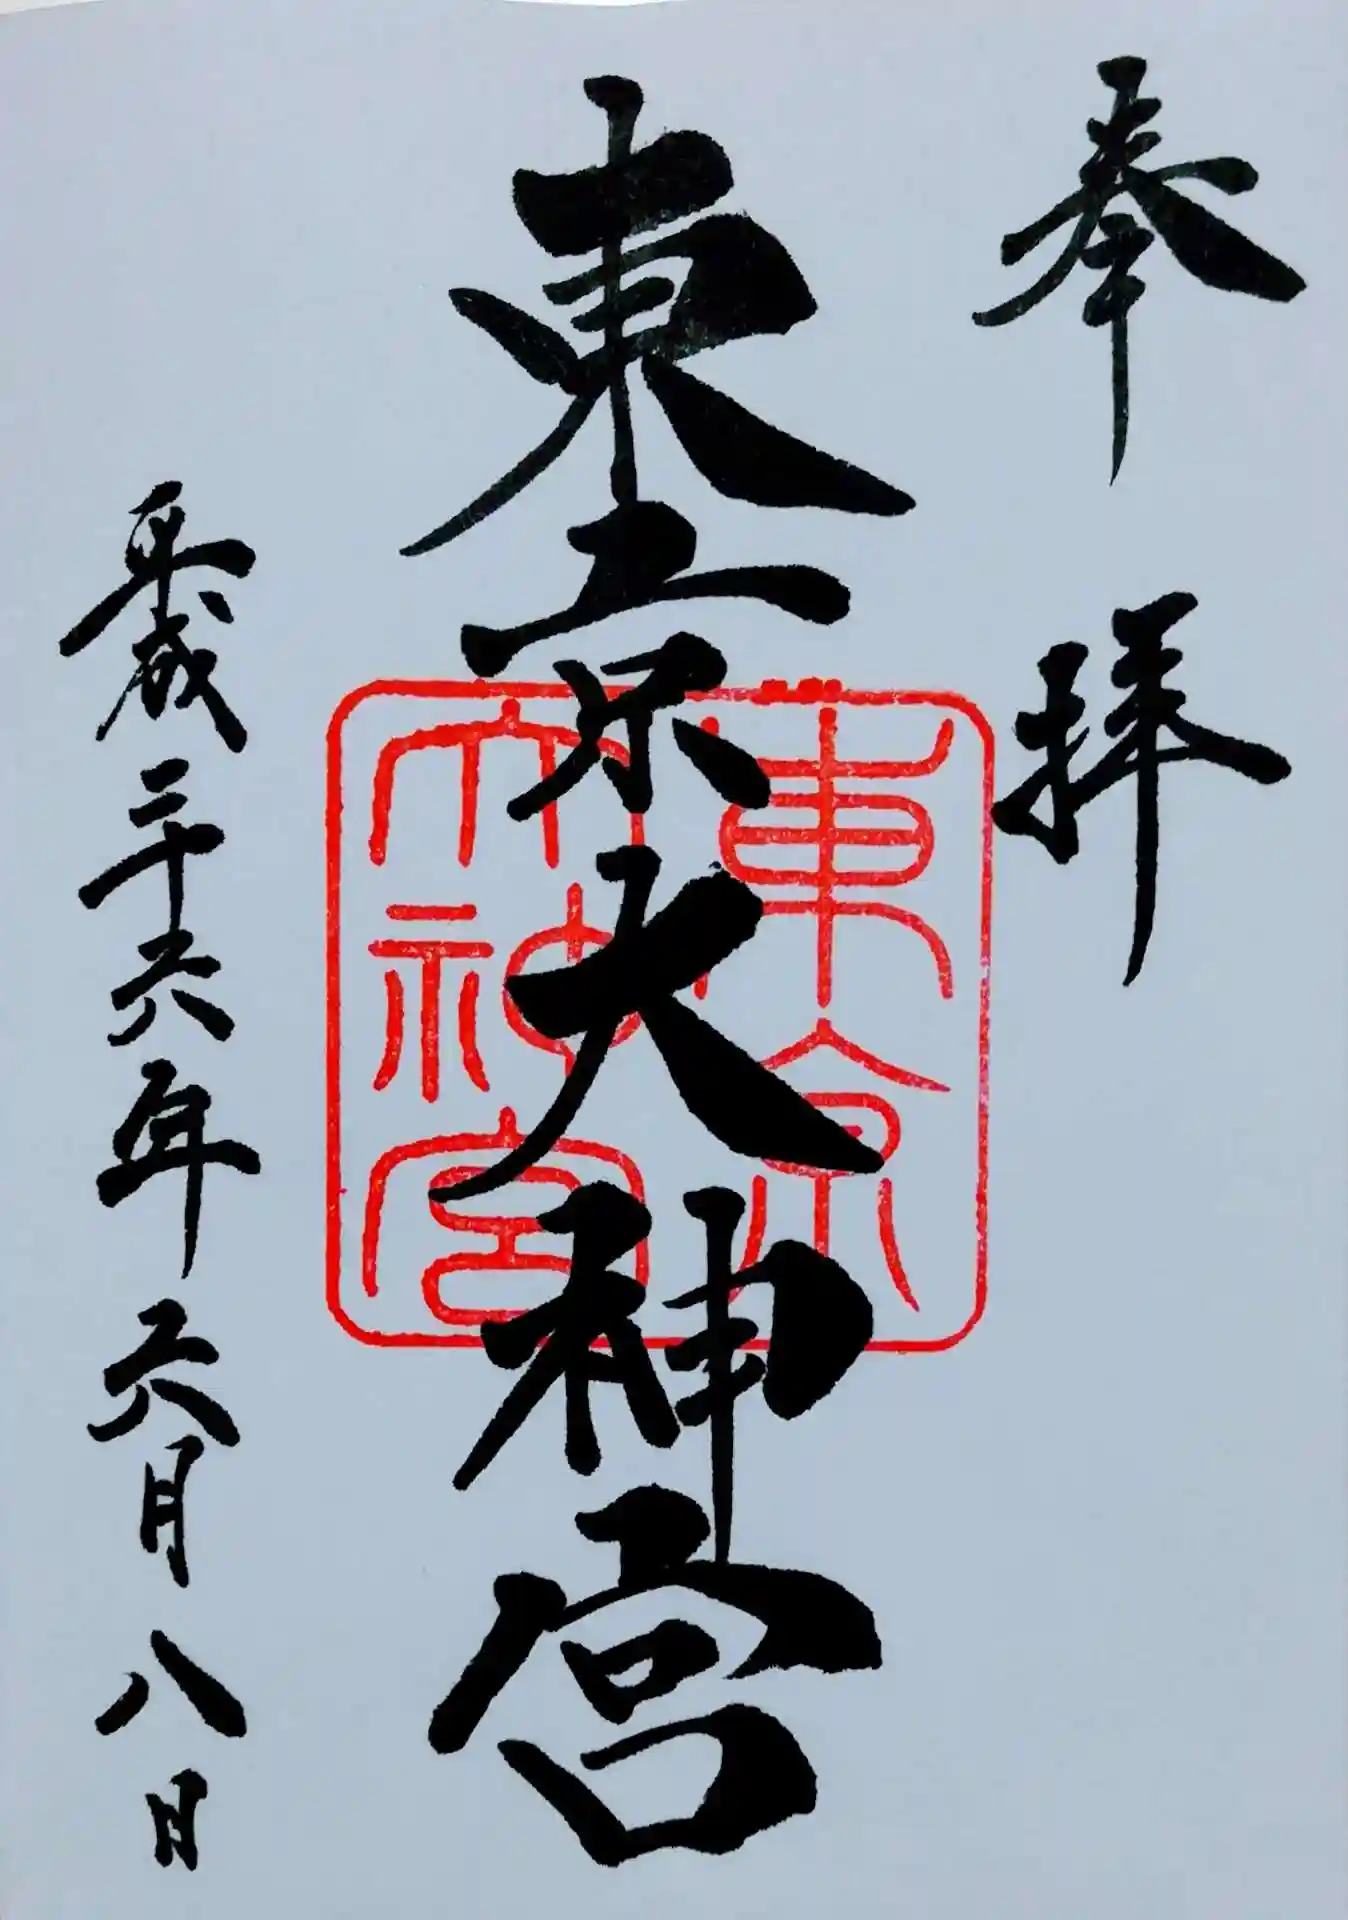 奉拝
東京大神宮
東京
大神宮
平成二十六年六月八日